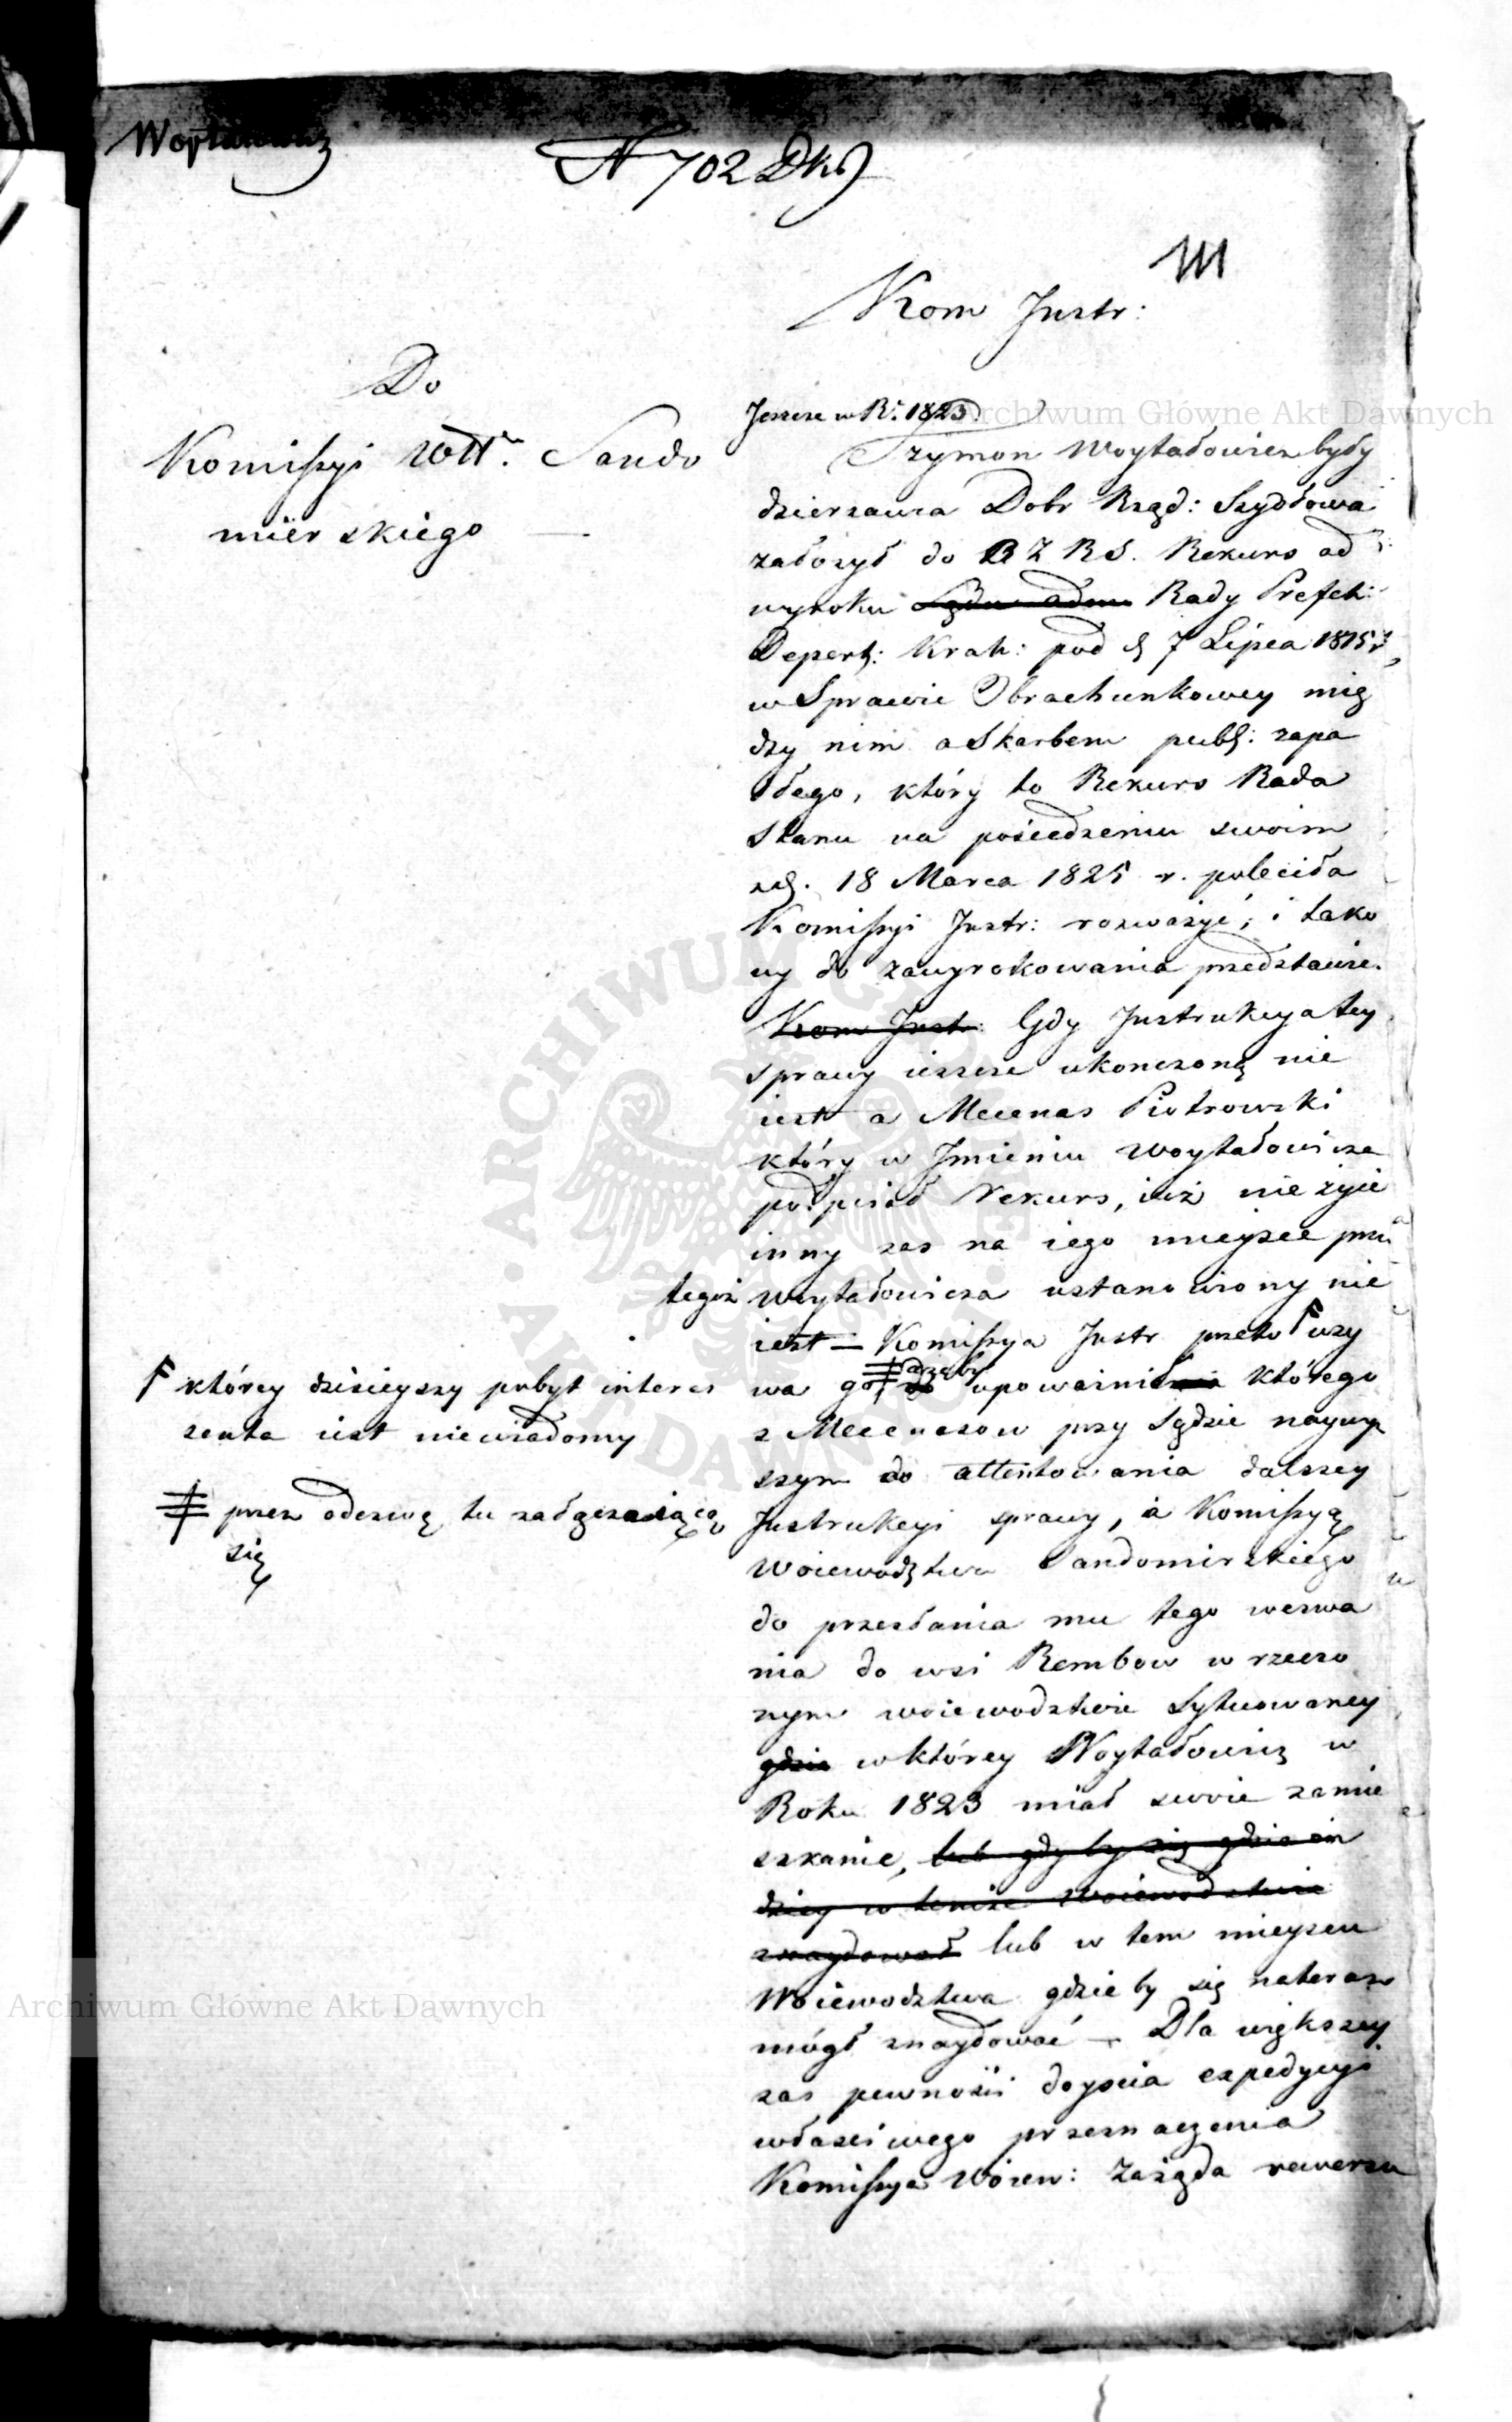 N 702 Dks
III
Kom Instr:
Do
Komissyi Wtt. Sando
mierskiego —
Jeszcze w R: 1823.
Szymon Woytałowicz były
dzierzawca Dobr Rząd: Szydłowa
założył do R Z R S. Rekurs od
wyroku Rady Prefek:
Depart: Krak: pod d 7 Lipca 1815 r,
w Sprawie Obrachunkowey mię
dzy nim a Skarbem publ: zapa
dłego, który to Rekurs Rada
Stanu na posiedzeniu swoim
zd. 18 Marca 1825 r. poleciła
Komissyi Instr: rozważyć, i tako
wy do zawyrokowania przedstawic.
Kom Instr: Gdy Instrukcya tey
sprawy ieszcze ukonczoną nie
iest a Mecenas Piotrowski
który w Imieniu Woytałowicza
podpisał Rekurs, iuż nie żyie
inny zas na iego mieysce przez
tegoż Woytałowicza ustanowiony nie
iest — Komissya Instr przeto wzy
wa go ażeby upoważnił którego
z Mecenasow przy Sądzie naywyż
szym do attentowania dalszey
Instrukcyi sprawy, a Komissyą
Woiewodztwa Sandomirskiego
do przesłania mu tego wezwa
nia do wsi Rembow w rzeczo
nym woiewodztwie Sytuowaney
gdzie w którey Woytałowicz w
Roku 1823 miał swoie zamie
szkanie, lub gdy by się gdzie in
dziey w temże Woiewodztwie
znaydował lub w tem mieyscu
Woiewodztwa gdzie by się nateraz
mógł znaydować — Dla większey
zas pewności doyscia expedycyi
właściwego przeznaczenia
Komissya Woiew: Zażąda rewersu
którey dzisieyszy pobyt interes
senta iest niewiadomy
przez odezwę tu załączaiącą
się
Archiwum Główne Akt Dawnych
Archiwum Główne Akt Dawnych
ARCHIWUM GŁÓWNE AKT DAWNYCH